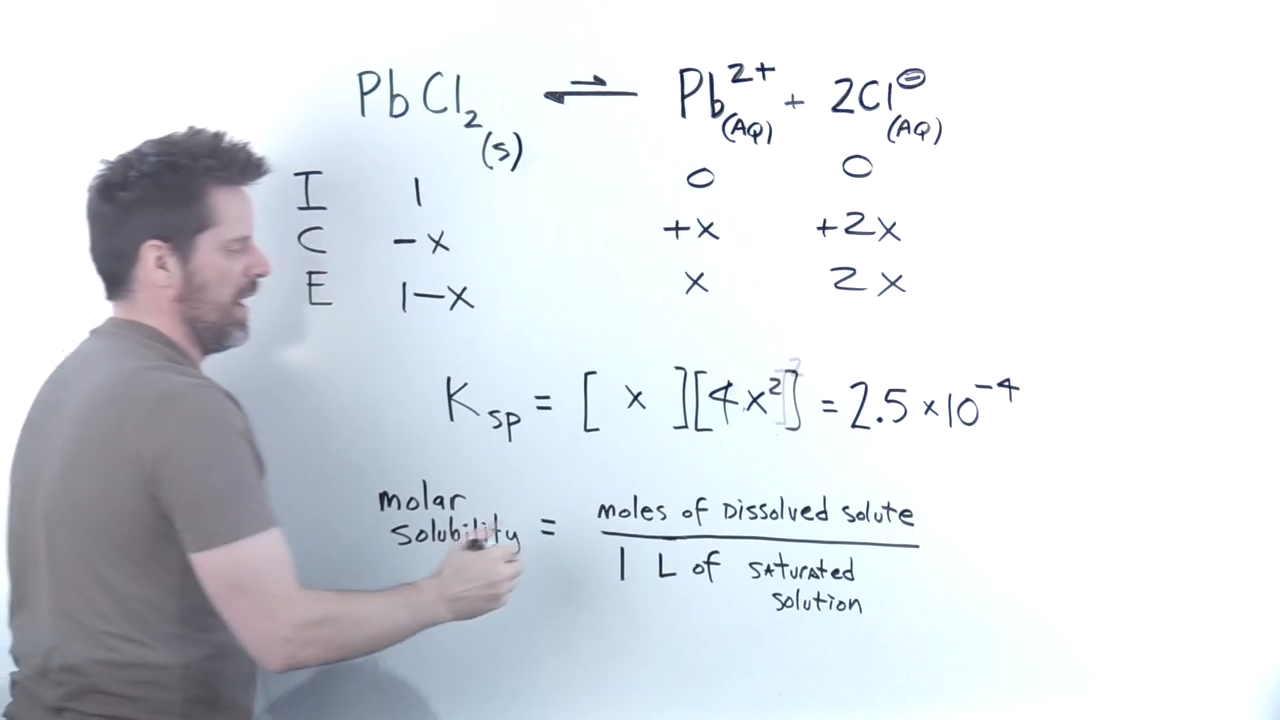 PbCl₂(s) ⇌ Pb²⁺(AQ) + 2Cl⊖(AQ)
I 1 0 0
C -x +x +2x
E 1-x x 2x
Ksp = [ x ][4x²] = 2.5 ×10⁻⁴
molar solubility = moles of Dissolved solute
1 L of saturated
solution